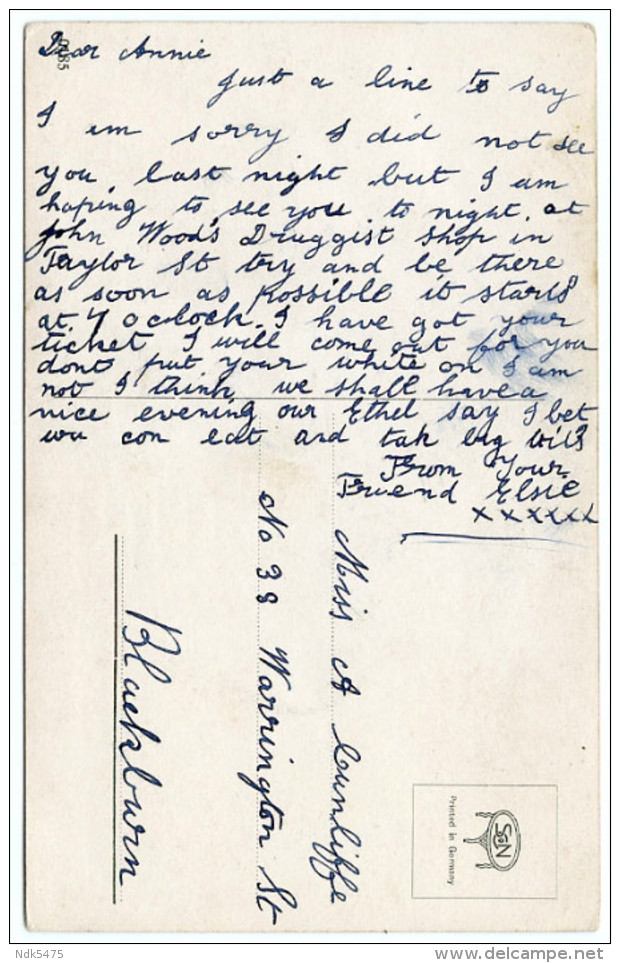 Dear Annie
0085
just a line to say
I am sorry I did not see
you last night but I am
hoping to see you to night. at
John Wood's Druggist Shop in
Taylor St try and be there
as soon as possible it starts
at 7 oclock. I have got your
ticket I will come out for you
dont put your white on I am
not I think we shall have a
nice evening our Ethel say I bet
wu con eat and tak big
From Your
Friend Elsie
xxxxxx
Miss A Cunliffe
No 38 Warrington St
Blackburn
SGN
Printed in Germany
Ndk5475
www.delcampe.net